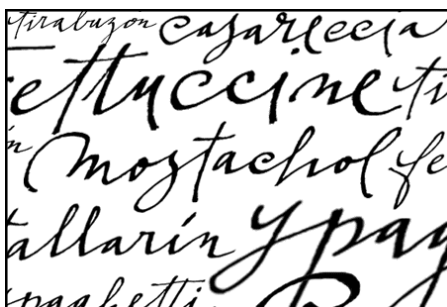 tirabuzon casareccia
ettuccine ti
n mostachol fe
allarín spag
spaghetti